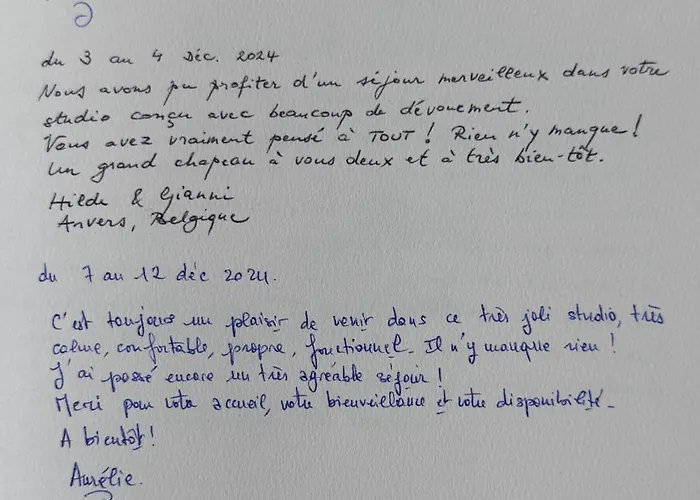 du 3 au 4 Déc. 2024
Nous avons pu profiter d'un séjour merveilleux dans votre
studio conçu avec beaucoup de dévouement.
Vous avez vraiment pensé à TOUT ! Rien n'y manque !
Un grand chapeau à vous deux et à très bien-tôt.
Hilde & Gianni
Anvers, Belgique
du 7 au 12 déc 2024.
C'est toujours un plaisir de venir dans ce très joli studio, très
calme, confortable, propre, fonctionnel. Il n'y manque rien !
J'ai passé encore un très agréable séjour !
Merci pour votre accueil, votre bienveillance et votre disponibilité.
A bientôt !
Aurélie.